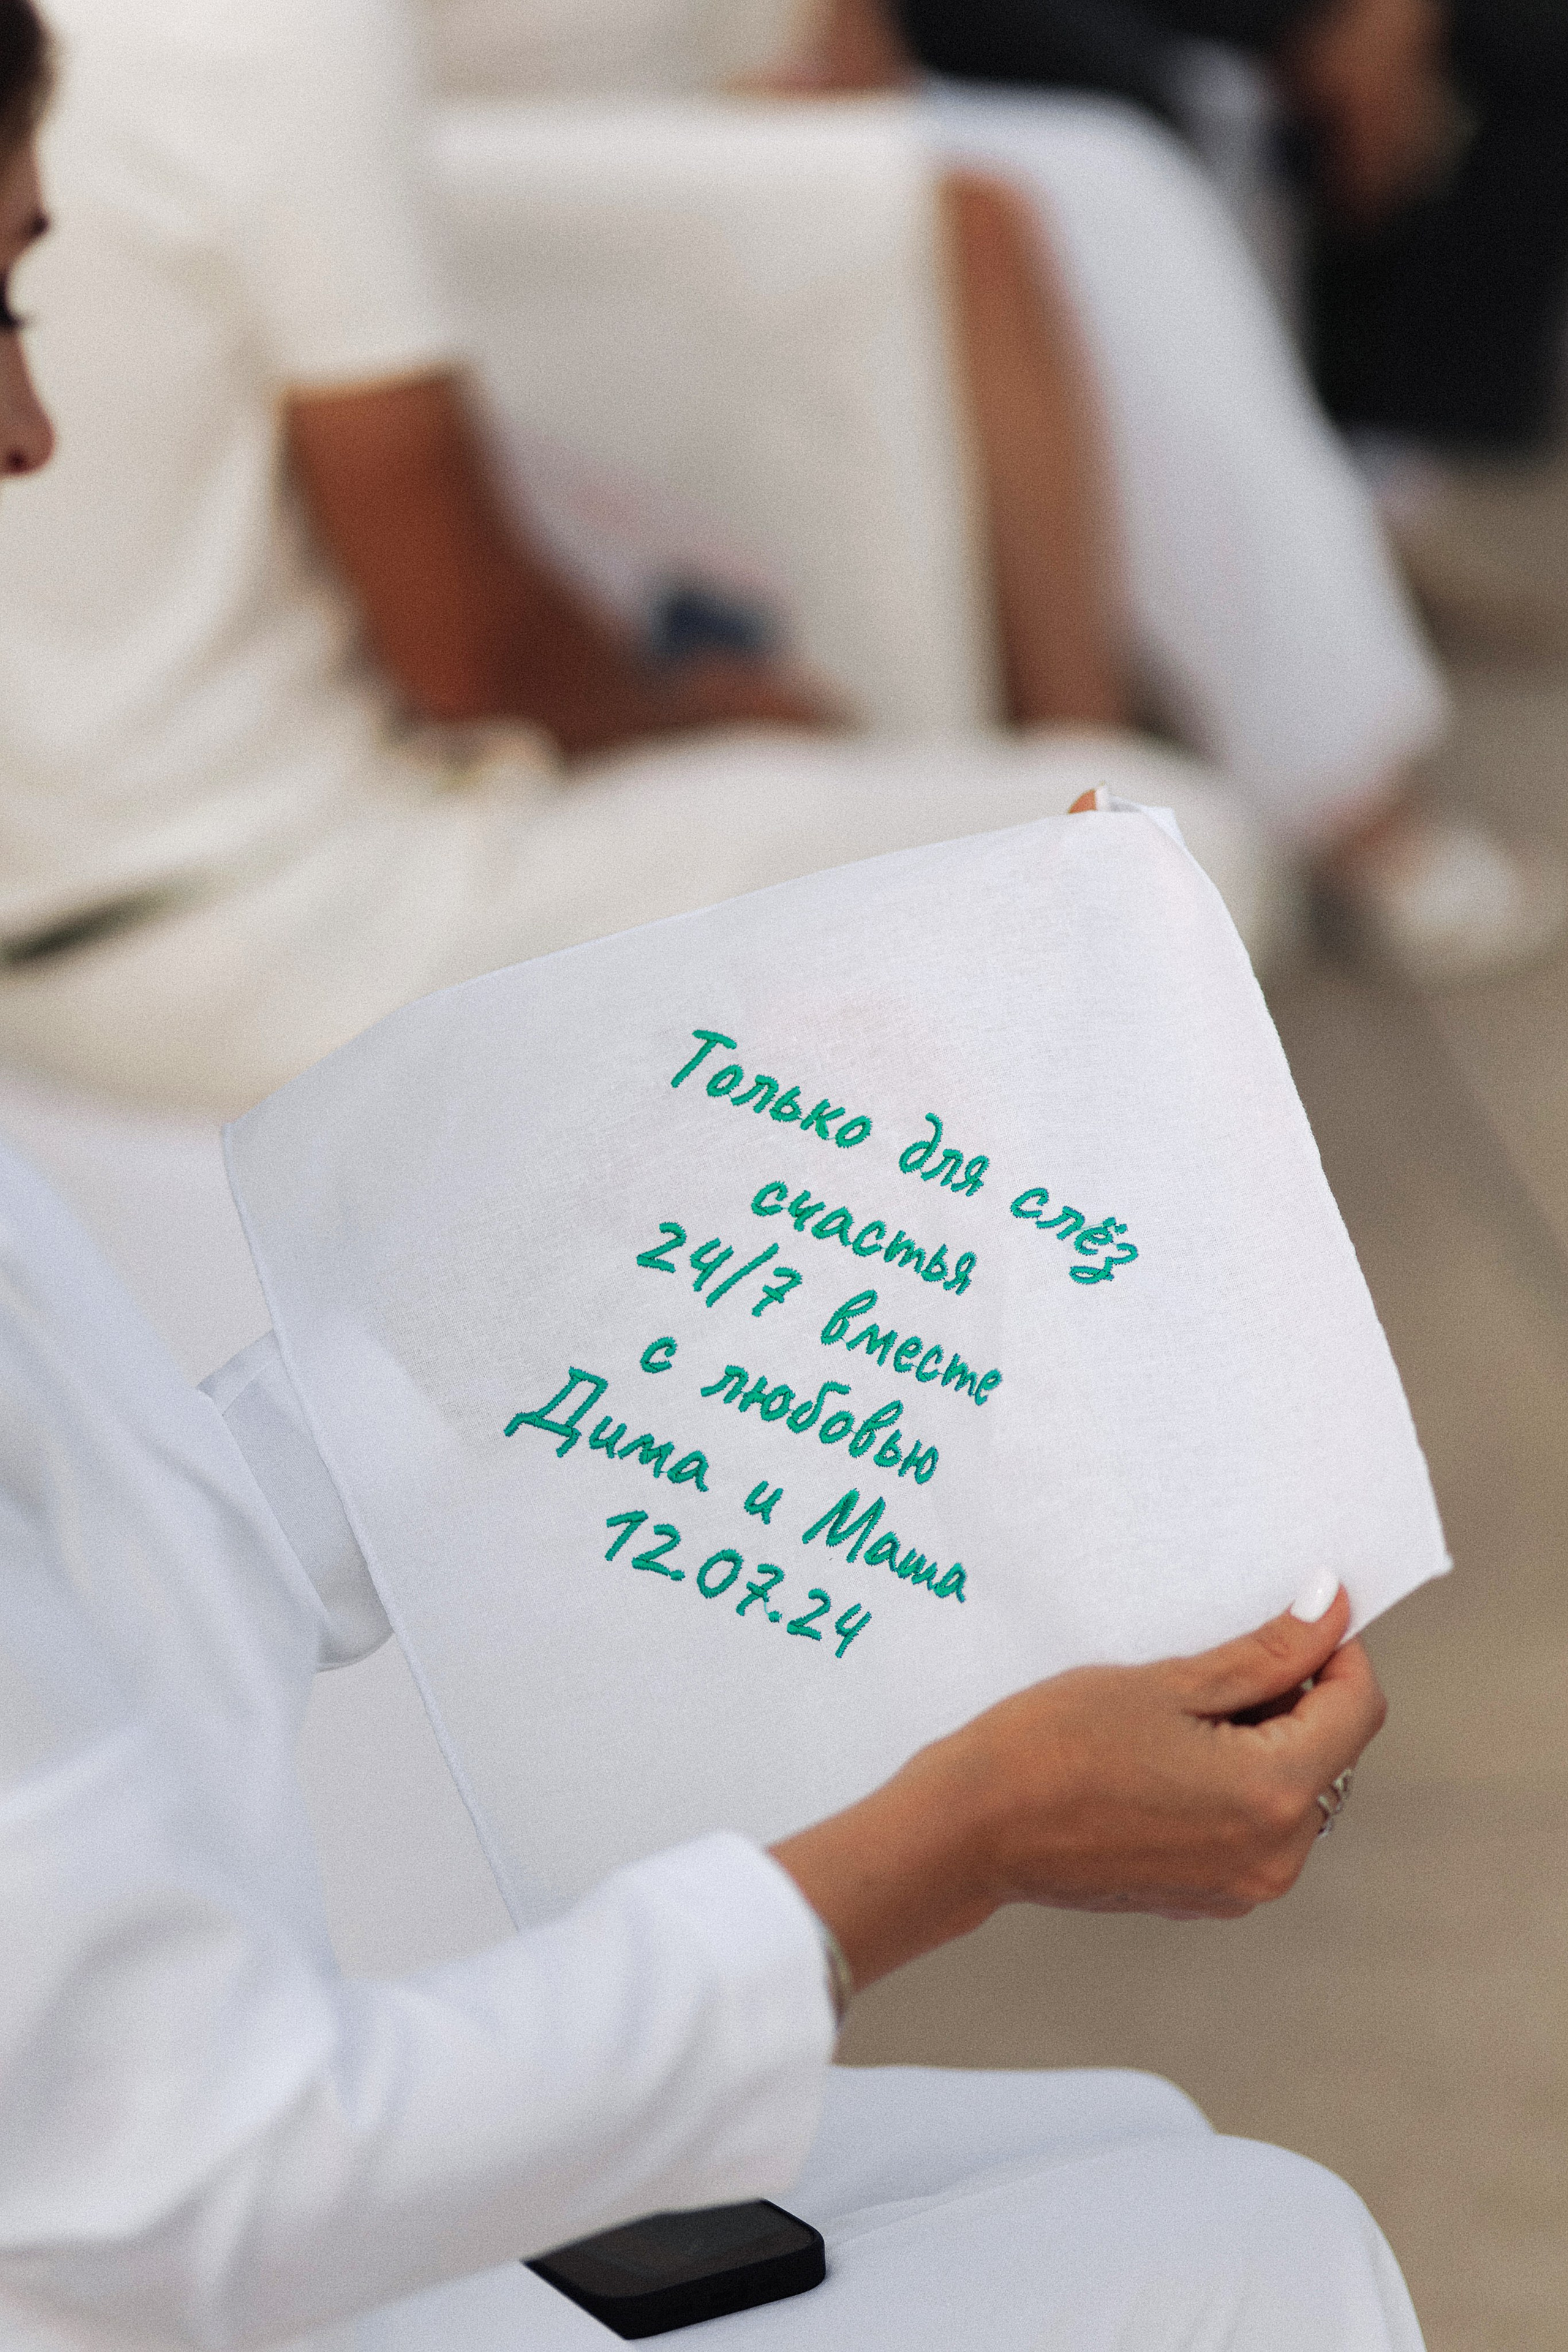 Только для слёз
счастья
24/7 вместе
с любовью
Дима и Маша
12.07.24